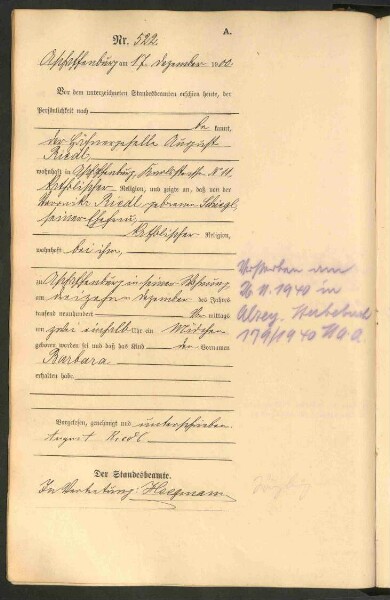 A.
Nr. 522.
Aschaffenburg am 17. Dezember 1900.
Vor dem unterzeichneten Standesbeamten erschien heute, der
Persönlichkeit nach
be kannt,
der August
Riedl,
wohnhaft in Aschaffenburg, N. 11.
katholischer Religion, und zeigte an, daß von der
Riedl, geborenen
seiner Ehefrau,
katholischer Religion,
wohnhaft bei ihm,
zu Aschaffenburg in seiner Wohnung
am Dezember des Jahres
tausend neunhundert Vor mittags
um zwei einhalb Uhr ein Mädchen
geboren worden sei und daß das Kind den Vornamen
Barbara
erhalten habe.
Vorgelesen, genehmigt und unterschrieben.
August Riedl
Der Standesbeamte.
In Vertretung:
Verstorben am
11. 1940 in
Alzey. Sterbebuch
179/1940